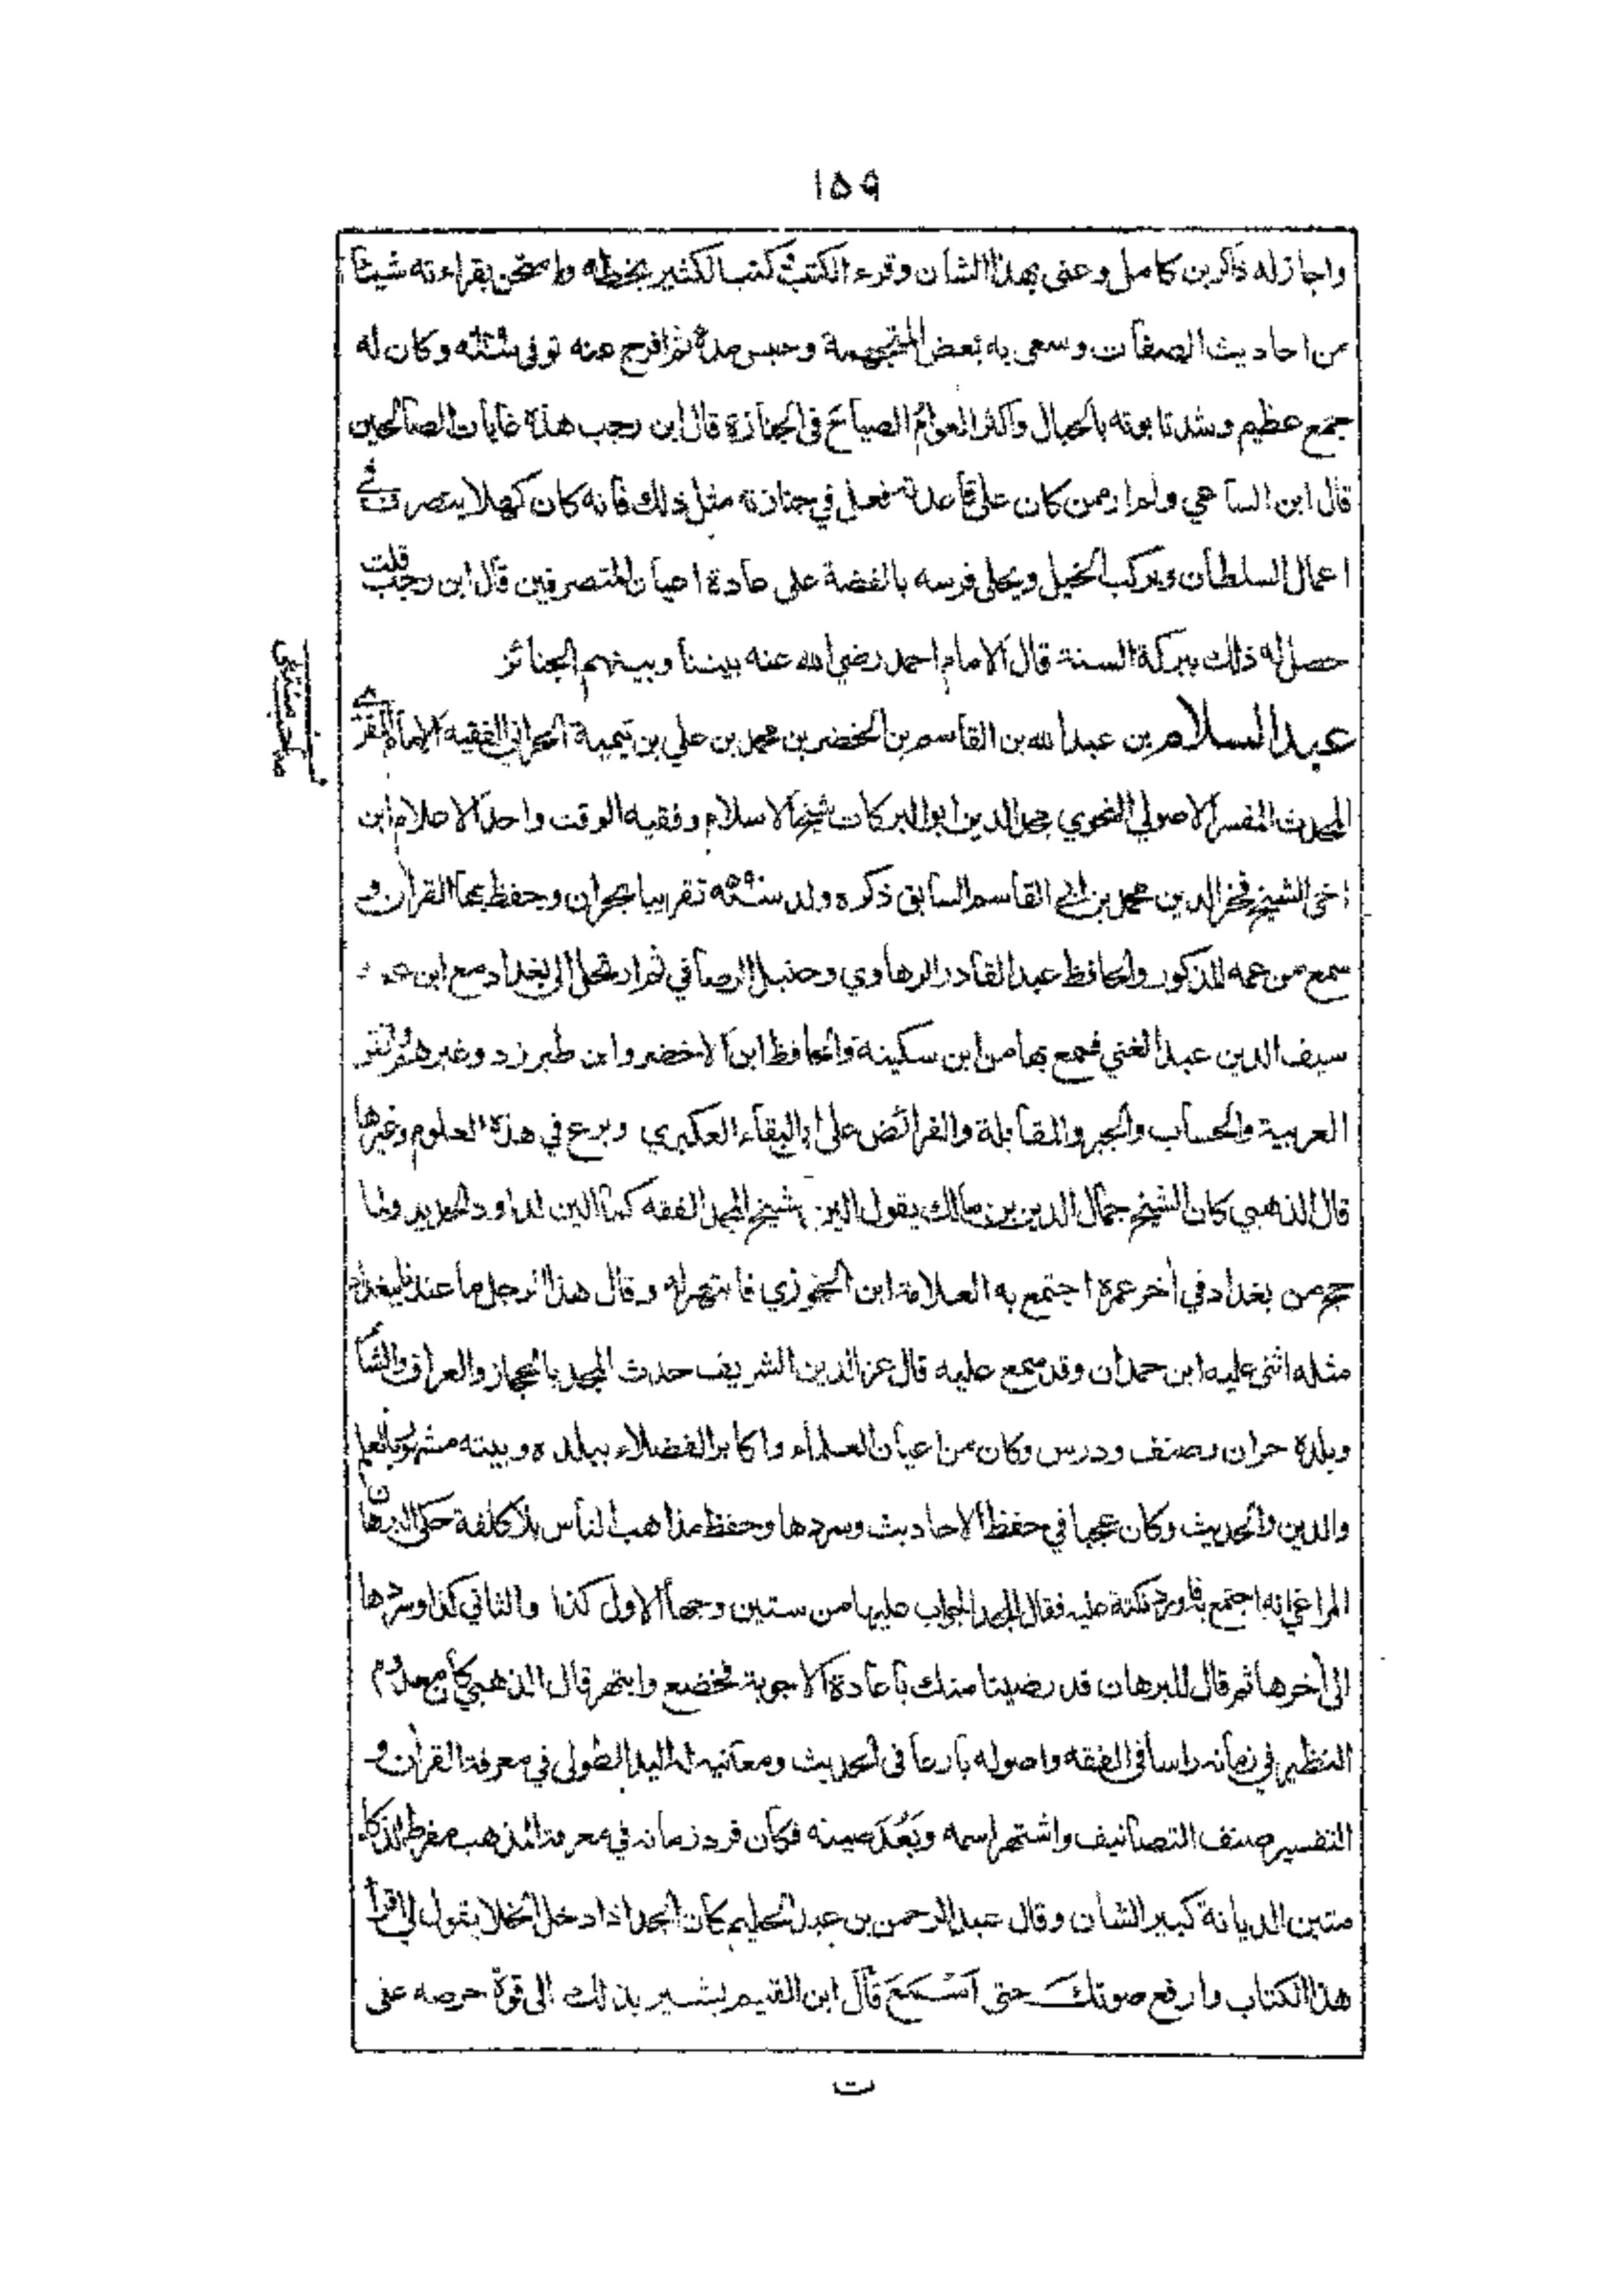 ١٥٩
واجاز له ذاكر بن كامل وعنى بهذا الشان وقرء الكتب وكتب الكثير بخطه وامتحن بقراءته شيئا
من احاديث الصفات وسعى به بعض المتجهمة وحبس مدة ثم افرج عنه توفى وكان له
جمع عظيم وشد تابوته بالحبال واكثر العوام الصياح فى الجنازة قال ابن رجب هذة غايات الصالحين
قال ابن الساعي ولم ار ممن كان على قاعدته فعل في جنازته مثل ذلك فانه كان كهلا يتصرف في
اعمال السلطان ويركب الخيل ويحلى فرسه بالفضة على عادة اعيان المتصرفين قال ابن رجب قلت
حصل له ذلك ببركة السنة قال الامام احمد رضي الله عنه بيننا وبينهم الجنائز
عبد السلام بن عبد الله بن القاسم بن الخضر بن محمد بن علي بن تيمية الحراني الفقيه الامام المقرئ
المحدث المفسر الاصولي النحوي مجد الدين ابو البركات شيخ الاسلام وفقيه الوقت واحد الاعلام ابن
اخى الشيخ فخر الدين محمد بن ابي القاسم السابق ذكره ولد سنة تقريبا بحران وحفظ بها القران و
سمع من عمه المذكور والحافظ عبد القادر الرهاوي وحنبل الرصافي ثم ارتحل الى بغداد مع ابن عمه
سيف الدين عبد الغني فسمع بها من ابن سكينة والحافظ ابن الاخضر وابن طبرزد وغيرهم
العربية والحساب والجبر والمقابلة والفرائض على ابى البقاء العكبري وبرع في هذة العلوم وغيرها
قال الذهبي كان الشيخ جمال الدين بن مالك يقول الين لشيخ المجد الفقه كما الين لداود الحديد ولما
حج من بغداد في اخر عمرة اجتمع به العلامة ابن الجوزي فانبهر له وقال هذا الرجل ما عندنا ببغداد
مثله اثنى عليه ابن حمدان وقد سمع عليه قال عز الدين الشريف حدث المجد بالحجاز والعراق والشام
وبلدة حران وصنف ودرس وكان من اعيان العلماء واكابر الفضلاء ببلده وبيته مشهور بالعلم
والدين والحديث وكان عجبا في حفظ الاحاديث وسردها وحفظ مذاهب الناس بلا كلفة حكى البرهان
المراغي انه اجتمع به فاورد نكتة عليه فقال المجد الجواب عليها من ستين وجها الاول كذا والثاني كذا وسردها
الى اخرها ثم قال للبرهان قد رضينا منك باعادة الاجوبة فخضع وانبهر قال الذهبي كان معدوم
النظير في زمانه راسا فى الفقه واصوله بارعا فى الحديث ومعانيه له اليد الطولى في معرفة القران و
التفسير صنف التصانيف واشتهر اسمه وبَعُدَ صيته فكان فرد زمانه في معرفة المذهب مفرط الذكاء
متين الديانة كبير الشان وقال عبد الرحمن بن عبد الحليم كان المجد اذا دخل الخلا يقول لي اقرأ
هذا الكتاب وارفع صوتك حتى اَسْمَعَ قال ابن القيم يشير بذلك الى قوة حرصه على
ت